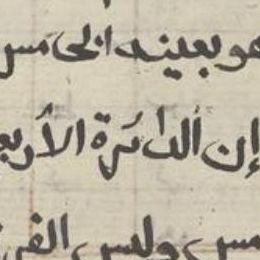 هو بعينه الخامس
إن الدائرة الأربع
وليس الفر